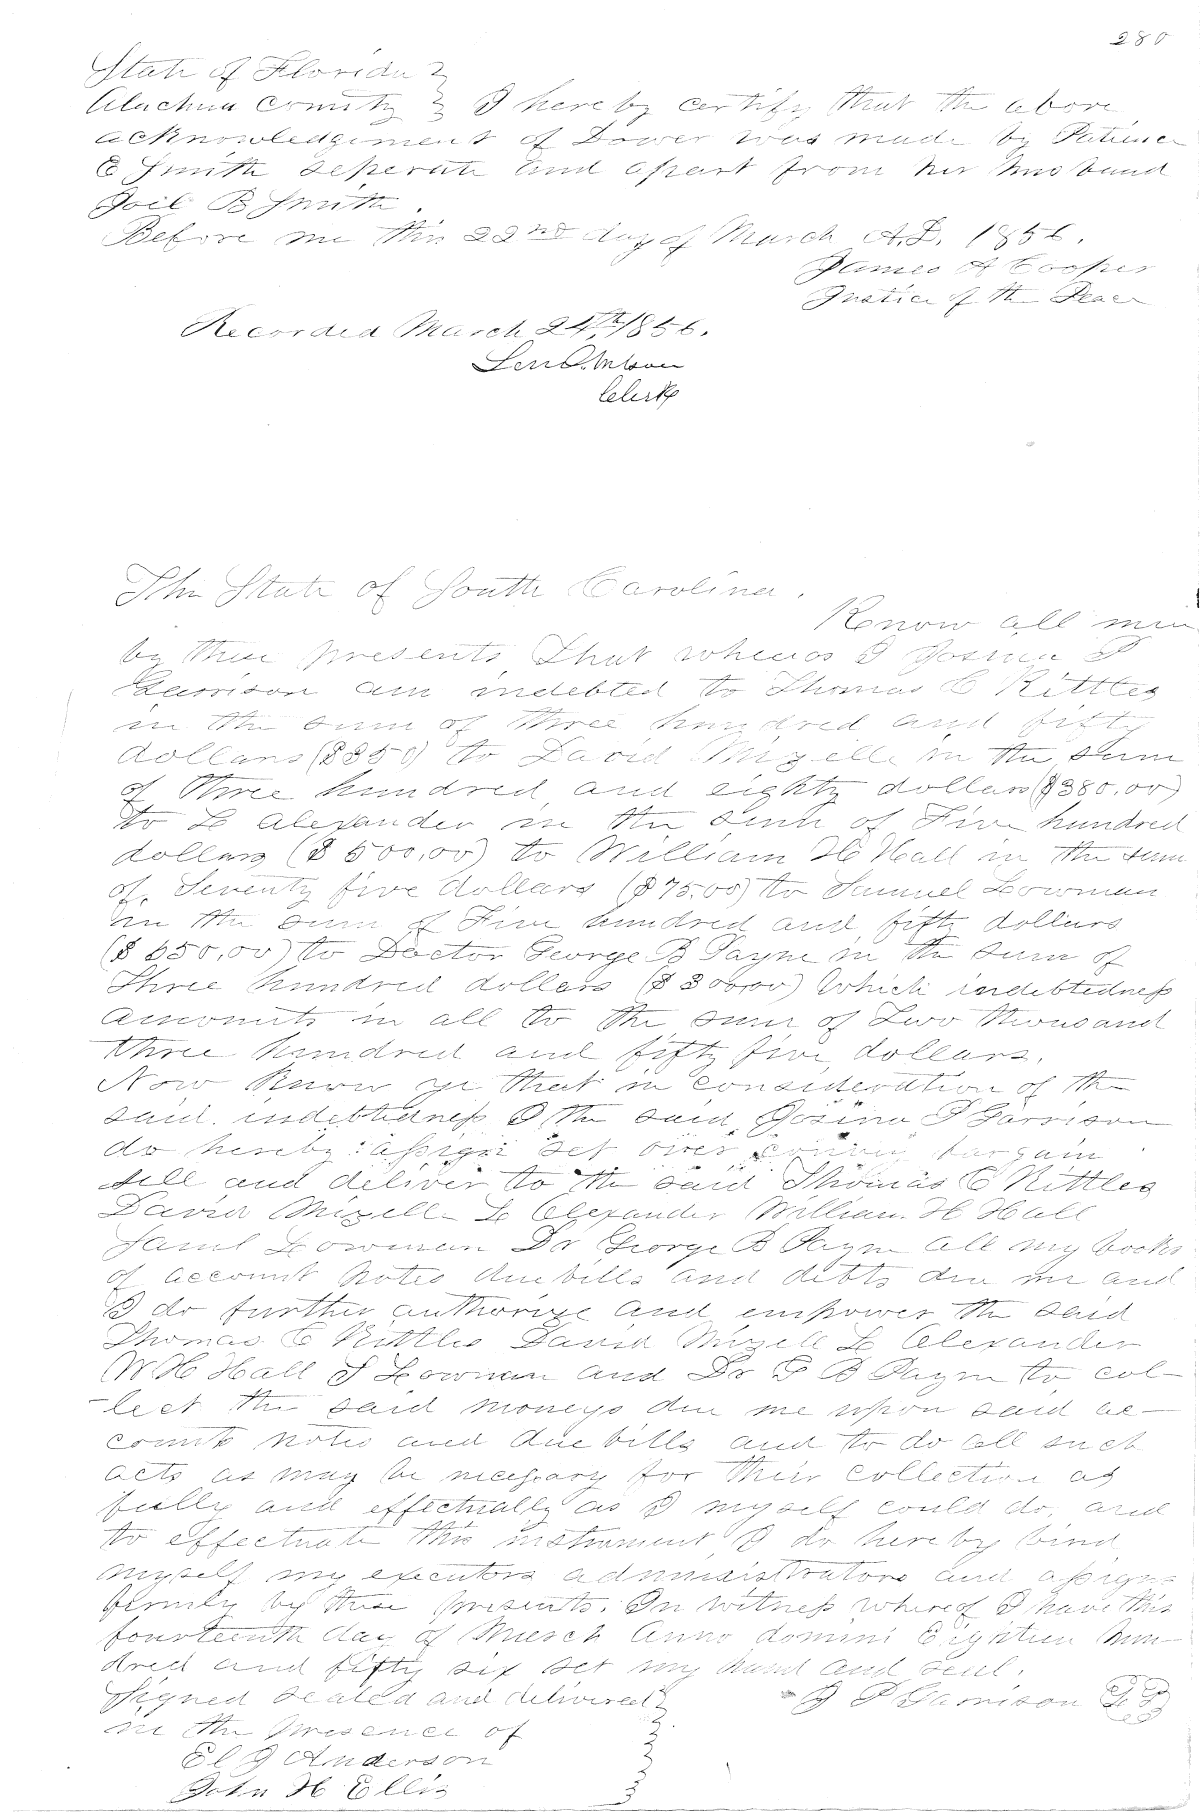 280
State of Florida }
Alachua County } I hereby certify that the above
acknowledgement of Dower was made by Patience
E Smith seperate and apart from her husband
Joel B Smith.
Before me this 22nd day of March A.D. 1856.
James A Cooper
Justice of the Peace
Recorded March 24th, 1856.
Clerk
The State of South Carolina.
Know all men
by these presents That whereas I Joshua P
Garrison am indebted to Thomas C Rittles
in the sum of three hundred and fifty
dollars ($350) to David Mizelle in the sum
of three hundred and eighty dollars ($380.00)
to L Alexander in the sum of Five hundred
dollars ($500.00) to William H Hall in the sum
of Seventy five dollars ($75.00) to Samuel Lowman
in the sum of Five hundred and fifty dollars
($550.00) to Doctor George B Payne in the sum of
Three hundred dollars ($300.00) Which indebtedness
amounts in all to the sum of Two thousand
three hundred and fifty five dollars.
Now know ye that in consideration of the
said indebtedness I the said Josiua P Garrison
do hereby assign set over convey bargain
sell and deliver to the said Thomas C Rittles
David Mizelle L Alexander William H Hall
Saml Lowman Dr George B Payne all my books
of account notes due bills and debts due me and
I do further authorize and empower the said
Thomas C Rittles David Mizell L Alexander
W H Hall S Lowman and Dr G B Payne to col-
-lect the said moneys due me upon said ac-
counts notes and due bills and to do all such
acts as may be necessary for their collection as
fully and effectually as I myself could do, and
to effectuate this instrument I do hereby bind
myself my executors administrators and assigns
firmly by these presents. In witness whereof I have this
fourteenth day of March Anno domini Eighteen hun-
dred and fifty six set my hand and seal.
Signed sealed and delivered } J P Garrison
in the presence of
El J Anderson
John H Ellis